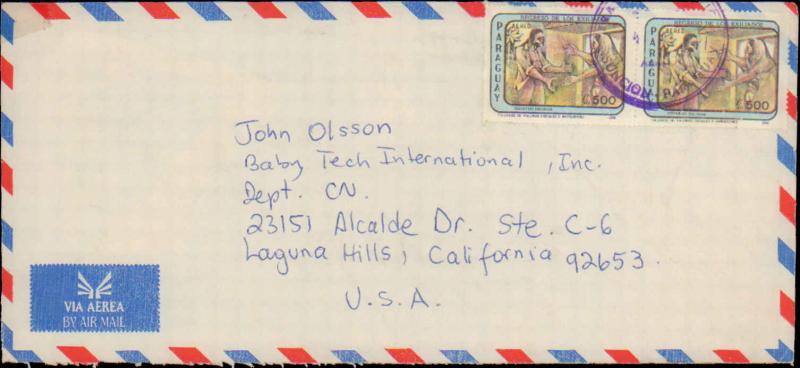 REGRESO DE LOS EXILIADOS
AEREO
PARAGUAY
₲500
REGRESO DE LOS EXILIADOS
AEREO
PARAGUAY
₲500
ASUNCION PARAGUAY
John Olsson
Baby Tech International, Inc.
Dept. CN.
23151 Alcalde Dr. Ste. C-6
Laguna Hills, California 92653.
U.S.A.
VIA AEREA
BY AIR MAIL